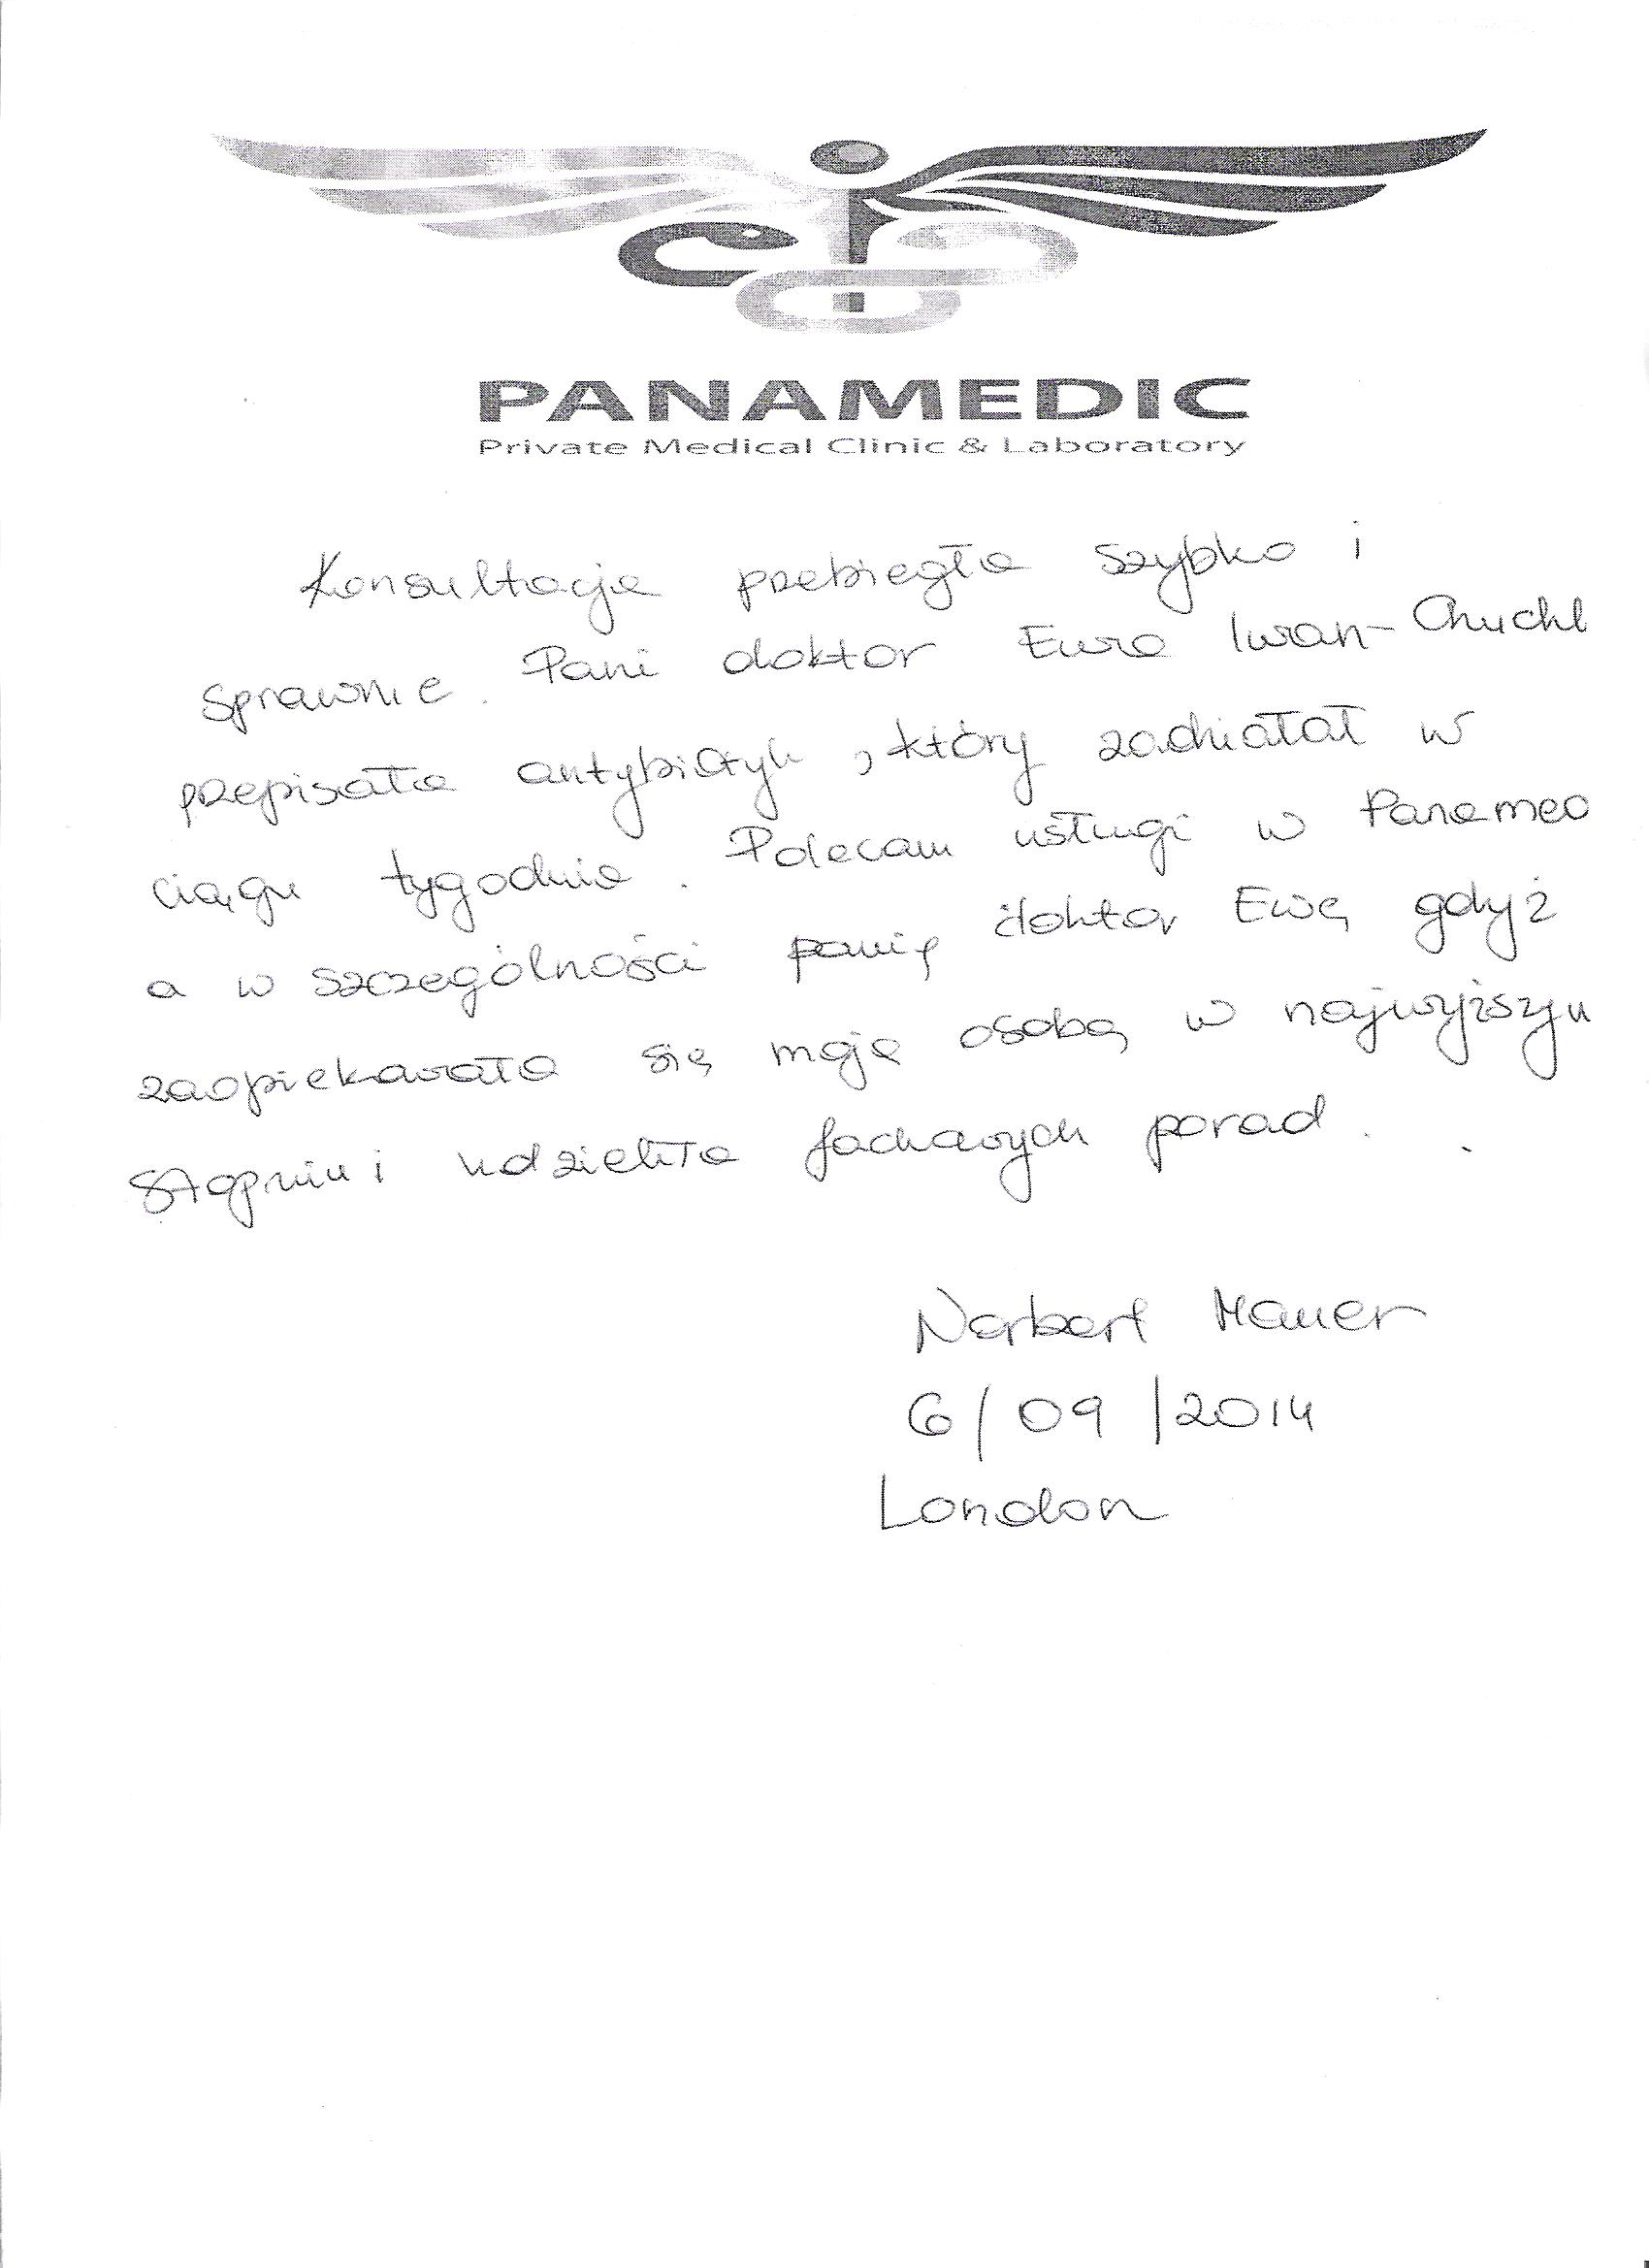 PANAMEDIC
Private Medical Clinic & Laboratory
Konsultacja przebiegła szybko i
sprawnie. Pani doktor Ewa Iwan-Chuchl
przepisała antybiotyk, który zadziałał w
ciągu tygodnia. Polecam usługi w Panameo
a w szczególności panią doktor Ewę gdyż
zaopiekowała się moją osobą w najwyższyu
stopniu i udzieliła fachowych porad.
Norbert Mauer
6/09/2014
London